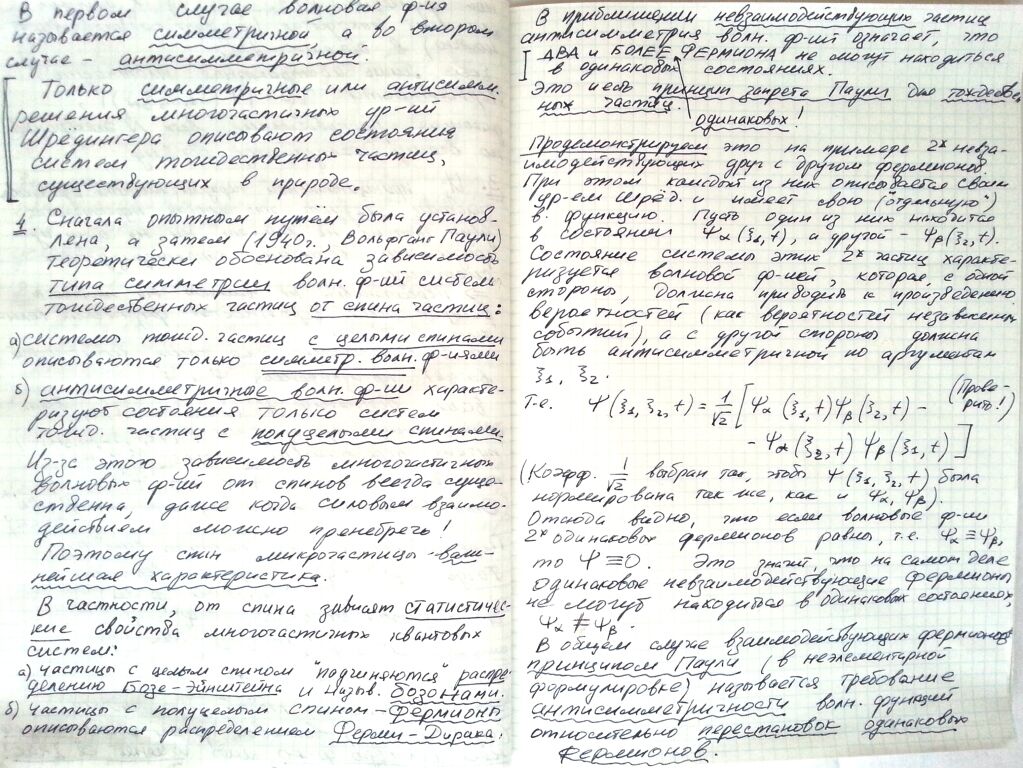 В первом случае волновая ф-ия
называется симметричной а во втором
случае – антисимметричной.
Только симметричные или антисимм.
решения многочастичных ур-ий
Шрёдингера описывают состояния
систем тождественных частиц,
существующих в природе.
1. Сначала опытным путём была установ-
лена, а затем (1940г., Вольфганг Паули)
теоретически обоснована зависимость
типа симметрии волн. ф-ий систем
тождественных частиц от спина частиц:
а) системы тожд. частиц с целыми спинами
описываются только симметр. волн. ф-иями
б) антисимметричные волн. ф-ии характе-
ризуют состояния только систем
тожд. частиц с полуцелыми спинами.
Из-за этого зависимость многочастичных
волновых ф-ий от спинов всегда суще-
ственна, даже когда силовым взаимо-
действием можно пренебречь!
Поэтому спин микрочастицы - важ-
нейшая характеристика.
В частности, от спина зависят статистичес-
кие свойства многочастичных квантовых
систем:
а) частицы с целым спином "подчиняются" распре-
делению Бозе-Эйнштейна и назыв. бозонами.
б) частицы с полуцелым спином – фермионы
описываются распределением Ферми-Дирака.
В приближении невзаимодействующих частиц
антисимметрия волн. ф-ий означает, что
ДВА и БОЛЕЕ ФЕРМИОНА не могут находиться
в одинаковых состояниях.
Это и есть принцип запрета Паули для тождествен-
ных частиц.
одинаковых!
Продемонстрируем это на примере 2х невза-
имодействующих друг с другом фермионов
При этом каждый из них описывается своим
ур-ем Шрёд. и имеет свою ("отдельную")
в. функцию. Пусть один из них находится
в состоянии Ψα(ξ1,t), а другой – Ψβ(ξ2,t).
Состояние системы этих 2х частиц характе-
ризуется волновой ф-ией, которая, с одной
стороны, должна приводить к произведению
вероятностей (как вероятностей независимых
событий), а с другой стороны должна
быть антисимметричной по аргументам
ξ1, ξ2.
Т.е. Ψ(ξ1,ξ2,t) = 1/√2 [Ψα(ξ1,t)Ψβ(ξ2,t) – (Прове-
рить!)
– Ψα(ξ2,t) Ψβ(ξ1,t)]
(Коэфф. 1/√2 выбран так, чтобы Ψ(ξ1,ξ2,t) была
нормирована так же, как и Ψα,Ψβ).
Отсюда видно, что если волновые ф-ии
2х одинаковых фермионов равны, т.е. Ψα≡Ψβ,
то Ψ≡0. Это значит, что на самом деле
одинаковые невзаимодействующие фермионы
не могут находиться в одинаковых состояниях,
Ψα ≢ Ψβ.
В общем случае взаимодействующих фермионов
принципом Паули (в неэлементарной
формулировке) называется требование
антисимметричности волн. функций
относительно перестановок одинаковых
фермионов.